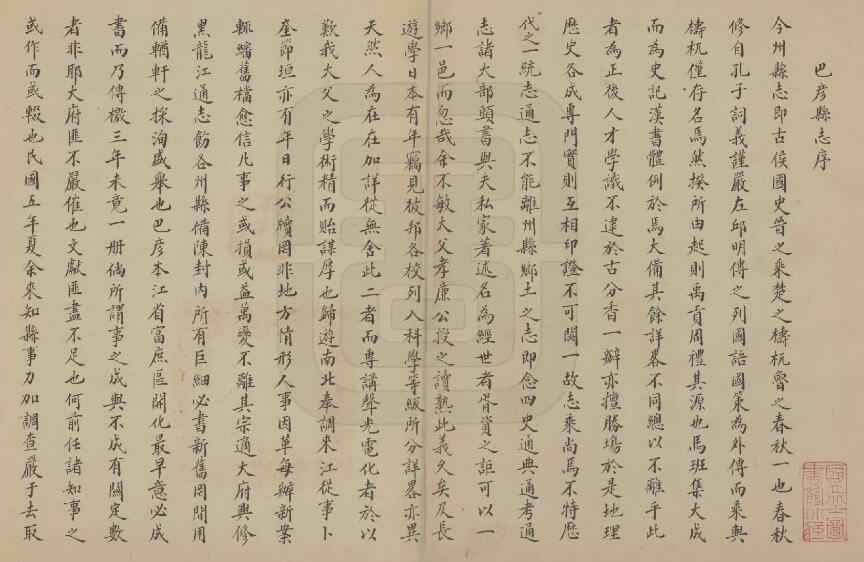 巴彥縣志序
今州縣志即古侯國史晉之乘楚之檮杌魯之春秋一也春秋
修自孔子詞義謹嚴左邱明傳之列國語國策為外傳而乘與
檮杌僅存名焉然揆所由起則禹貢周禮其源也馬班集大成
而為史記漢書體例於焉大備其餘詳畧不同總以不離乎此
者為正後人才學識不逮於古分香一瓣亦擅勝場於是地理
歷史各成專門實則互相印證不可闕一故志乘尚焉不特歷
代之一統志通志不能離州縣鄉土之志即念四史通典通考通
志諸大部頭書與夫私家著述名為經世者胥資之詎可以一
鄉一邑而忽哉余不敏大父孝廉公授之讀熟此義久矣及長
遊學日本有年竊見彼邦各校列入科學等級所分詳畧亦異
天然人為在在加詳從無舍此二者而專講聲光電化者於以
歎我大父之學術精而貽謀厚也歸遊南北奉調來江從事卜
奎節垣亦有年日行公牘罔非地方情形人事因革每辦新案
輒繙舊檔愈信凡事之或損或益萬變不離其宗適大府興修
黑龍江通志飭各州縣備陳封內所有巨細必書新舊罔間用
備輶軒之採洵盛舉也巴彥本江省富庶區開化最早意必成
書而乃傳檄三年未竟一冊倘所謂事之成與不成有關定數
者非耶大府匪不嚴催也文獻匪盡不足也何前任諸知事之
或作而或輟也民國五年夏余來知縣事力加調查嚴于去取